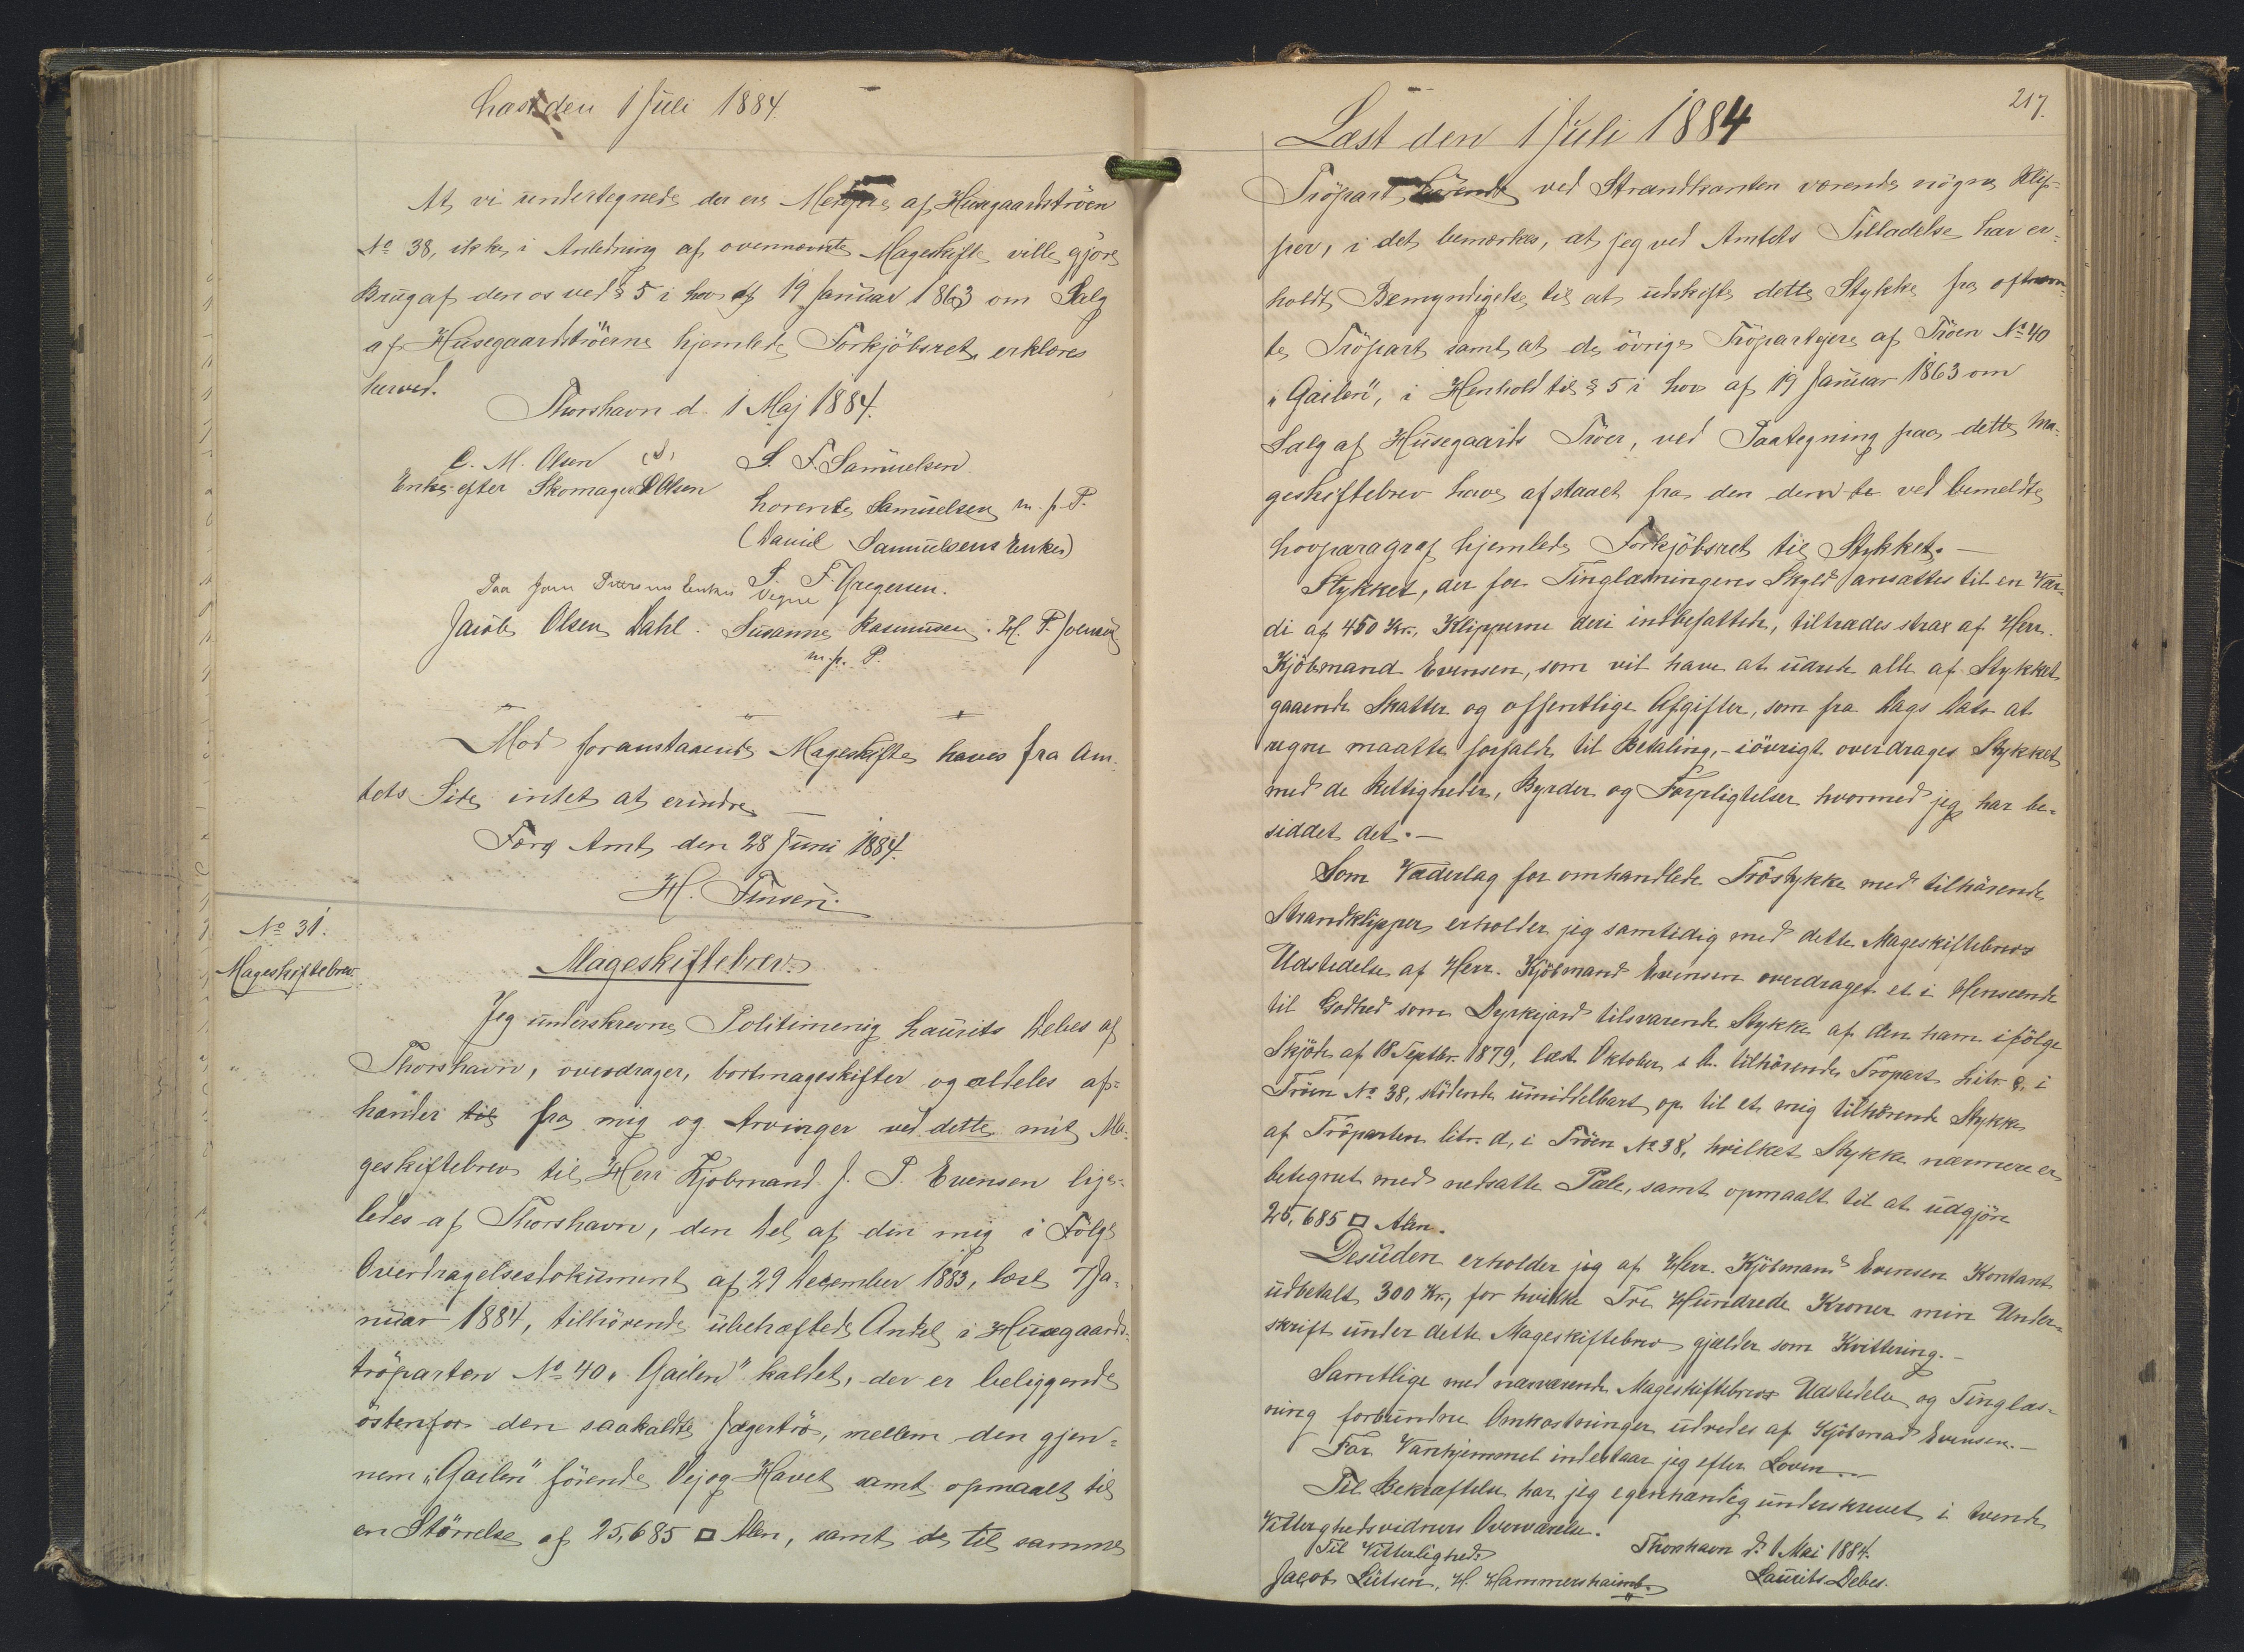 Læst den 1 Juli 1884.
At vi undertegnede der ere Medejere af Husegaardströen
No 38, ikke i Anledning af ovennævnte Mageskifte ville gjøre
Brug af den os ved § 5 i Lov af 19 Januar 1863 om Salg
af Husegaardströerne hjemlede Forkjöbsret, erklæres
herved.
Thorshavn d. 1 Maj 1884.
C. M. Olsen
S. F. Samuelsen
Enke efter Skomager Olsen
Lorentse Samuelsen m. p. P.
(David Samuelsens Enke)
Paa Enkes Vegne
S. F. Gregersen.
Jacob Olsen Dahl. Susanne Rasmussen. H. P. Joensen
m. p. P.
Mod foranstaaende Mageskifte haves fra Am-
tets Side intet at erindre
Færø Amt, den 28 Juni 1884.
H. Finsen.
No 31.
Mageskiftebrev.
Mageskiftebrev.
Jeg underskrevne Politimenig Laurits Debes af
Thorshavn, overdrager, bortmageskifter og aldeles af-
hænder til fra mig og Arvinger ved dette mit Ma-
geskiftebrev til Herr Kjöbmand J. P. Evensen lige-
ledes af Thorshavn, den Del af den mig i Fölge
Overdragelsesdokument af 29 December 1883, læst 7 Ja-
nuar 1884, tilhörende ubehæftede Andel i Husegaards-
tröparten No 40 "Gailen" kaldet, der er beliggende
östenfor den saakaldte Jægertrö, mellem den gjen-
nem "Gailen" förende Vej og Havet samt opmaalt til
en Störrelse af 25,685 □ Alen, samt de til samme
217.
Læst den 1 Juli 1884
Tröpart hörende ved Strandkanten værende nögne Klip-
per, i det bemærkes, at jeg ved Amtets Tilladelse har er-
holdt Bemyndigelse til at udskifte dette Stykke fra oftnævn-
te Tröpart samt at de övrige Tröpartejere af Tröen No 40
"Gailen", i Henhold til § 5 i Lov af 19 Januar 1863 om
Salg af Husegaards Tröer, ved Paategning paa dette Ma-
geskiftebrev have afstaaet fra den dem ved bemeldte
Lovparagraf hjemlede Forkjöbsret til Stykket.—
Stykket, der for Tinglæsningens Skyld ansættes til en Vær-
di af 450 Kr., Klipperne deri indbefattede, tiltrædes strax af Herr.
Kjöbmand Evensen, som vil have at udrede alle af Stykket
gaaende Skatter og offentlige Afgifter, som fra Dags Dato at
regne maatte forfalde til Betaling,- iövrigt overdrages Stykket
med de Rettigheder, Byrder og Forpligtelser hvormed jeg har be-
siddet det.—
Som Vederlag for omhandlede Tröstykke med tilhörende
Strandklipper erholder jeg samtidig med dette Mageskiftebrevs
Udstedelse af Herr. Kjöbmand Evensen overdraget et i Henseende
til Godhed som Dyrkejord tilsvarende Stykke af den ham ifölge
Skjöde af 18 Septbr. 1879, læst Oktober s. A. tilhörende Tröpart Litr. c. i
Tröen No 38, stödende umiddelbart op til et mig tilhörende Stykke
af Tröparten litr. d, i Tröen No 38, hvilket Stykke nærmere er
betegnet med nedsatte Pæle, samt opmaalt til at udgjöre
25,685 □ Alen.
Desuden erholder jeg af Herr. Kjöbmand Evensen Kontant
udbetalt 300 Kr., for hvilke Tre Hundrede Kroner min Under-
skrift under dette Mageskiftebrev gjælder som Kvittering.—
Samtlige med nærværende Mageskiftebrevs Udstedelse og Tinglæs-
ning forbundne Omkostninger udredes af Kjöbmad Evensen.—
For Vanhjemmel indestaar jeg efter Loven.—
Til Bekræftelse har jeg egenhændig underskrevet i tvende
Vitterlighedsvidners Overværelse.
Thorshavn d. 1 Mai 1884.
Til Vitterlighed:
Laurits Debes.
Jacob Lützen, H. Hammershaimb.